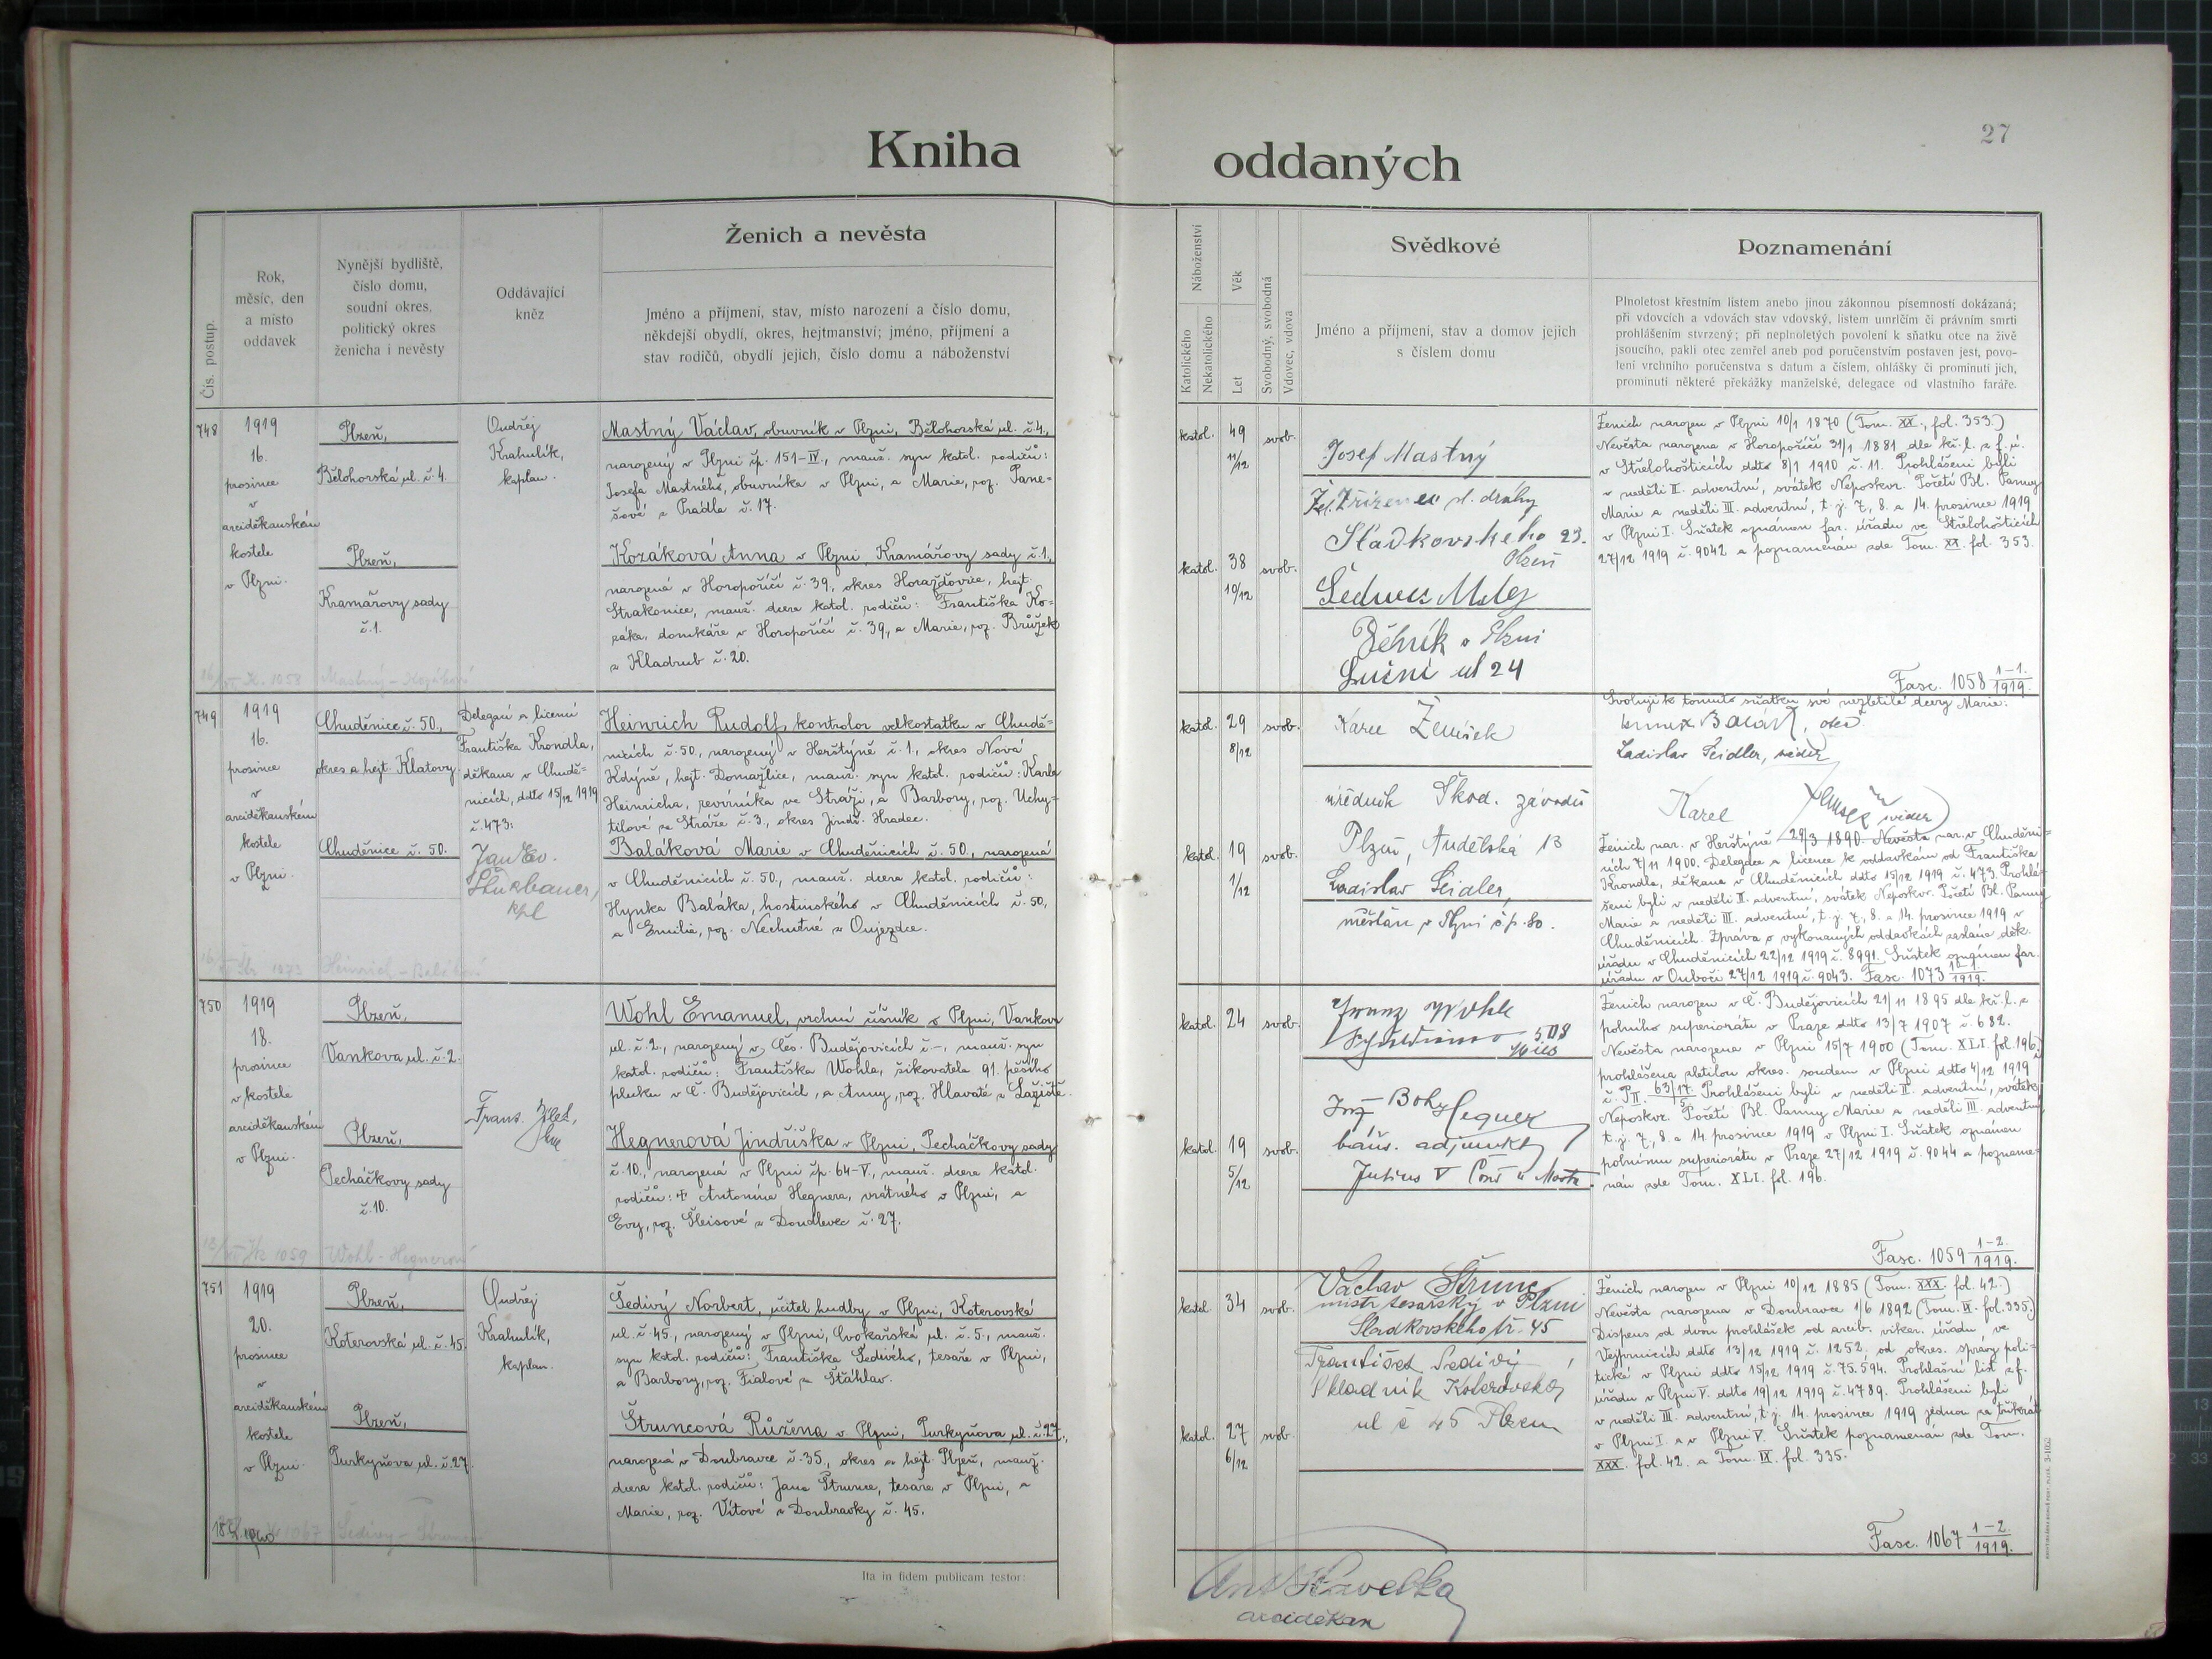 27
Kniha oddaných
Čís. postup.
Rok,
měsíc, den
a místo
oddavek
Nynější bydliště,
číslo domu,
soudní okres,
politický okres
ženicha i nevěsty
Oddávající
kněz
Ženich a nevěsta
Jméno a příjmení, stav, místo narození a číslo domu,
někdejší obydlí, okres, hejtmanství; jméno, příjmení a
stav rodičů, obydlí jejich, číslo domu a náboženství
Náboženství
Katolického
Nekatolického
Věk
Let
Svobodný, svobodná
Vdovec, vdova
Svědkové
Jméno a příjmení, stav a domov jejich
s číslem domu
Poznamenání
Plnoletost křestním listem anebo jinou zákonnou písemností dokázaná;
při vdovcích a vdovách stav vdovský, listem úmrlčím či právním smrti
prohlášením stvrzený; při neplnoletých povolení k sňatku otce na živě
jsoucího, pakli otec zemřel aneb pod poručenstvím postaven jest, povo-
lení vrchního poručenstva s datum a číslem, ohlášky či prominutí jich,
prominutí některé překážky manželské, delegace od vlastního faráře.
748
1919
16.
prosince
v
arciděkanském
kostele
v Plzni.
Plzeň,
Bělohorská ul. č. 4.
Plzeň,
Kramářovy sady
č. 1.
Ondřej
Krahulík,
kaplan.
Mastný Václav, obuvník v Plzni, Bělohorská ul. č. 4.,
narozený v Plzni čp. 151-IV., manž. syn katol. rodičů:
Josefa Mastného, obuvníka v Plzni, a Marie, roz. Pane-
šové z Prádla č. 17.
Kozáková Anna v Plzni, Kramářovy sady č. 1.,
narozená v Horopoříčí č. 39, okres Horažďovice, hejt.
Strakonice, manž. dcera katol. rodičů: Františka Ko-
záka, domkáře v Horopoříčí č. 39, a Marie, roz. Brůžek
z Kladrub č. 20.
Mastný - Kozáková
katol. 49 11/12 svob.
katol. 38 10/12 svob.
Josef Mastný
Žel. Zřízenec st. dráhy
Sladkovského 23.
Plzeň
Dělník v Plzni
Luční ul 24
Ženich narozen v Plzni 10/1 1870 (Tom. XX., fol. 353.)
Nevěsta narozena v Horopoříčí 31/1 1881 dle kř. l. z f. ú.
v Střelohošticích ddto 8/1 1910 č. 11. Prohlášeni byli
v neděli II. adventní, svátek Neposkvr. Početí Bl. Panny
Marie a neděli III. adventní, t. j. 7., 8. a 14. prosince 1919
v Plzni I. Sňatek oznámen far. úřadu ve Střelohošticích
27/12 1919 č. 9042 a poznamenán zde Tom. XX. fol. 353.
Fasc. 1058 1-1./1919.
749
1919
16.
prosince
v
arciděkanském
kostele
v Plzni.
Chuděnice č. 50.,
okres a hejt. Klatovy.
Chuděnice č. 50.
Delegací a licencí
Františka Krondla,
děkana v Chudě-
nicích, ddto 15/12 1919
č. 473:
kpl
Heinrich Rudolf, kontrolor velkostatku v Chudě-
nicích č. 50., narozený v Herštýně č. 1., okres Nová
Kdýně, hejt. Domažlice, manž. syn katol. rodičů: Karla
Heinricha, revírníka ve Stráži, a Barbory, roz. Uchy-
tilové ze Stráže č. 3., okres Jindř. Hradec.
Baláková Marie v Chuděnicích č. 50., narozená
v Chuděnicích č. 50., manž. dcera katol. rodičů:
Hynka Baláka, hostinského v Chuděnicích č. 50,
a Emilie, roz. Nechutné z Oujezdce.
Heinrich - Baláková
katol. 29 8/12 svob.
katol. 19 1/12 svob.
Karel Žemísek
úředník Škod. závodů
Plzeň, Andělská 13
Ladislav Seidler,
měšťan v Plzni čp. 80.
Svoluji k tomuto sňatku své nezletilé dcery Marie:
Balák, otec
Ladislav Seidler, svědek
Karel
Ženich nar. v Herštýně 29/3 1890. Nevěsta nar. v Chuděni-
cích 7/11 1900. Delegace a licence k oddavkám od Františka
Krondla, děkana v Chuděnicích ddto 15/12 1919 č. 473. Prohlá-
šeni byli v neděli II. adventní, svátek Neposkvr. Početí Bl. Panny
Marie a neděli III. adventní, t. j. 7., 8. a 14. prosince 1919 v
Chuděnicích. Zpráva o vykonaných oddavkách zaslána děk.
úřadu v Chuděnicích 22/12 1919 č. 8991. Sňatek oznámen far.
úřadu v Ouboči 27/12 1919 č. 9043. Fasc. 1073
750
1919
18.
prosince
v kostele
arciděkanském
v Plzni.
Plzeň,
Vankova ul. č. 2.
Plzeň,
Pecháčkovy sady
č. 10.
Wohl Emanuel, vrchní číšník v Plzni, Vankova
ul. č. 2., narozený v Čes. Budějovicích č. -, manž. syn
katol. rodičů: Františka Wohla, šikovatele 91. pěšího
pluku v Č. Budějovicích, a Anny, roz. Hlavaté z Lažiště.
Hegnerová Jindřiška v Plzni, Pecháčkovy sady
č. 10., narozená v Plzni čp. 64-V., manž. dcera katol.
rodičů: † Antonína Hegnera, vrátného v Plzni, a
Evy, roz. Šleisové z Doudlevec č. 27.
Wohl - Hegnerová
katol. 24 svob.
katol. 19 5/12 svob.
508
báň. adjunkt
Ženich narozen v Č. Budějovicích 21/11 1895 dle kř. l. z
polního superiorátu v Praze ddto 13/7 1907 č. 682.
Nevěsta narozena v Plzni 15/7 1900 (Tom. XLI. fol. 196.)
prohlášena zletilou okres. soudem v Plzni ddto 4/12 1919
Prohlášeni byli v neděli II. adventní, svátek
Neposkvr. Početí Bl. Panny Marie a neděli III. adventní,
t. j. 7., 8. a 14. prosince 1919 v Plzni I. Sňatek oznámen
polnímu superiorátu v Praze 27/12 1919 č. 9044 a pozname-
nán zde Tom. XLI. fol. 196.
Fasc. 1059 1-2./1919.
751
1919
20.
prosince
v
arciděkanském
kostele
v Plzni.
Plzeň,
Koterovská ul. č. 45.
Plzeň,
Purkyňova ul. č. 27.
Ondřej
Krahulík,
kaplan.
Šedivý Norbert, učitel hudby v Plzni, Koterovská
ul. č. 45., narozený v Plzni, Cvokařská ul. č. 5., manž.
syn katol. rodičů: Františka Šedivého, tesaře v Plzni,
a Barbory, roz. Fialové ze Štáhlav.
Štruncová Růžena v Plzni, Purkyňova ul. č. 27.,
narozená v Doubravce č. 35., okres a hejt. Plzeň, manž.
dcera katol. rodičů: Jana Štrunce, tesaře v Plzni, a
Marie, roz. Vítové z Doubravky č. 45.
katol. 34 svob.
katol. 27 6/12 svob.
Václav Štrunc
mistr tesařský v Plzni
Sladkovského tř. 45
František Šedivý
skladník Koterovská
ul č 45 Plzeň
Ženich narozen v Plzni 10/12 1885 (Tom. XXX. fol. 42.)
Nevěsta narozena v Doubravce 1/6 1892 (Tom. IX. fol. 335.)
Dispens od dvou prohlášek od arcib. vikar. úřadu ve
Vejprnicích ddto 13/12 1919 č. 1252. od okres. správy poli-
tické v Plzni ddto 15/12 1919 č. 75.594. Prohlašní list z f.
úřadu v Plzni V. ddto 19/12 1919 č. 4789. Prohlášeni byli
v neděli III. adventní, t. j. 14. prosince 1919 jednou za třikrát
v Plzni I. a v Plzni V. Sňatek poznamenán zde Tom.
XXX. fol. 42. a Tom. IX. fol. 335.
Fasc. 1067 1-2./1919.
Ita in fidem publicam testor:
arciděkan